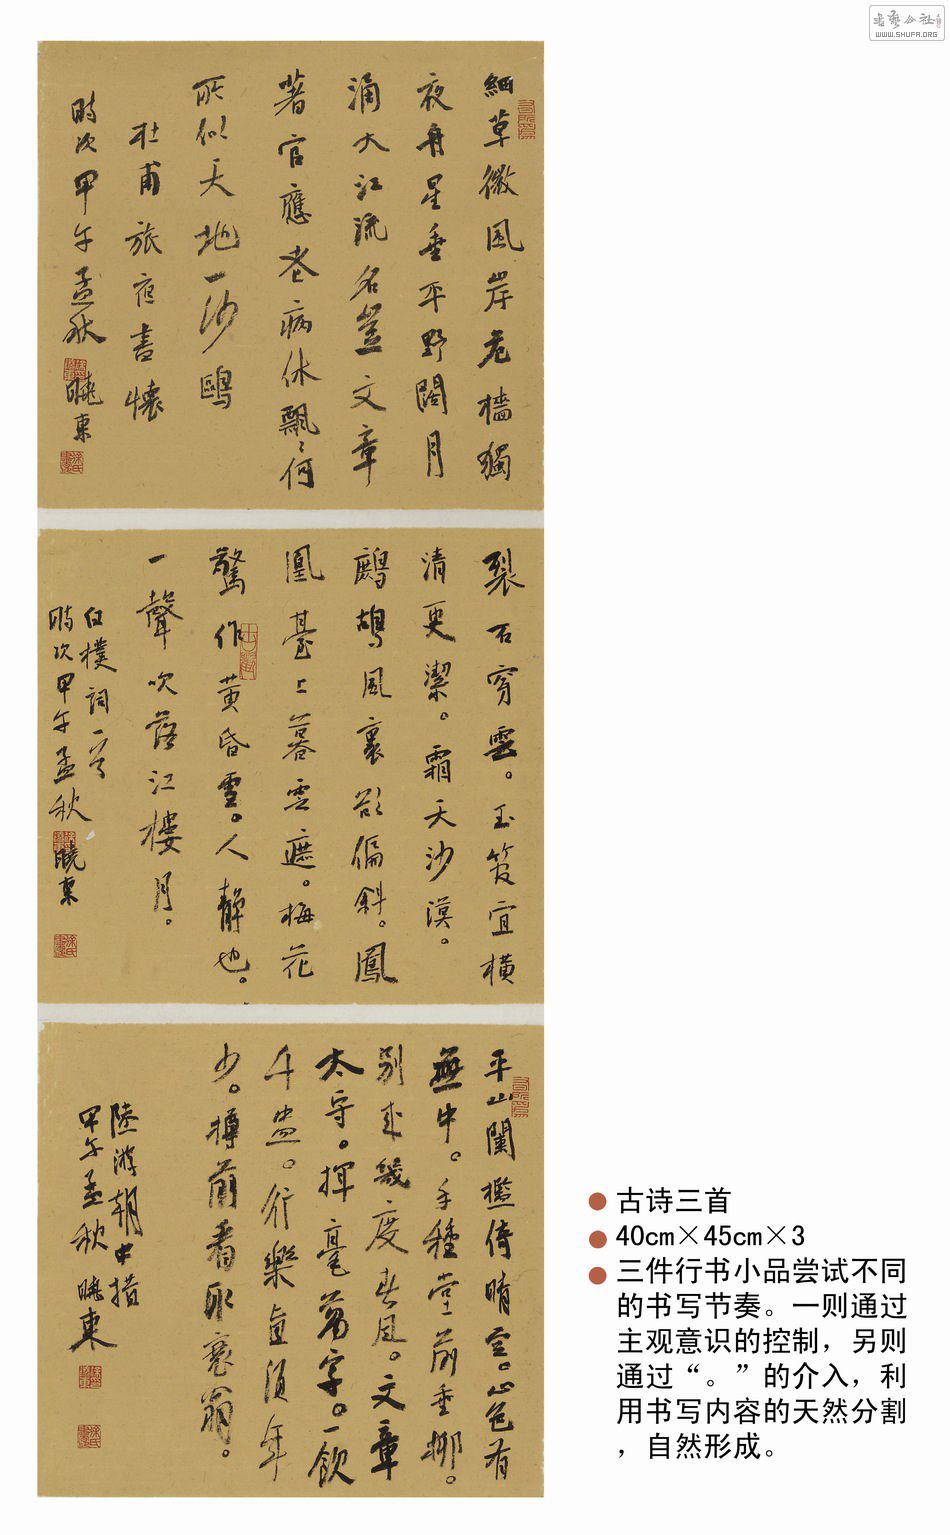 書藝公社
WWW.SHUFA.ORG
細草微風岸危檣獨
夜舟星垂平野闊月
涌大江流名豈文章
著官應老病休飄〻何
所似天地一沙鷗
杜甫旅夜書懷
時次甲午孟秋曉東
裂石穿雲。玉管宜橫
清更潔。霜天沙漠。
鷓鴣風裏欲偏斜。鳳
凰臺上暮雲遮。梅花
驚作黃昏雪。人靜也。
一聲吹落江樓月。
白樸詞一首
時次甲午孟秋曉東
平山闌檻倚晴空。山色有
無中。手種堂前垂柳。
別來幾度春風。文章
太守。揮毫萬字。一飲
千盅。行樂直須年
少。樽前看取衰翁。
陸游朝中措
甲午孟秋曉東
古诗三首
40cm×45cm×3
三件行书小品尝试不同
的书写节奏。一则通过
主观意识的控制，另则
通过“。”的介入，利
用书写内容的天然分割
，自然形成。